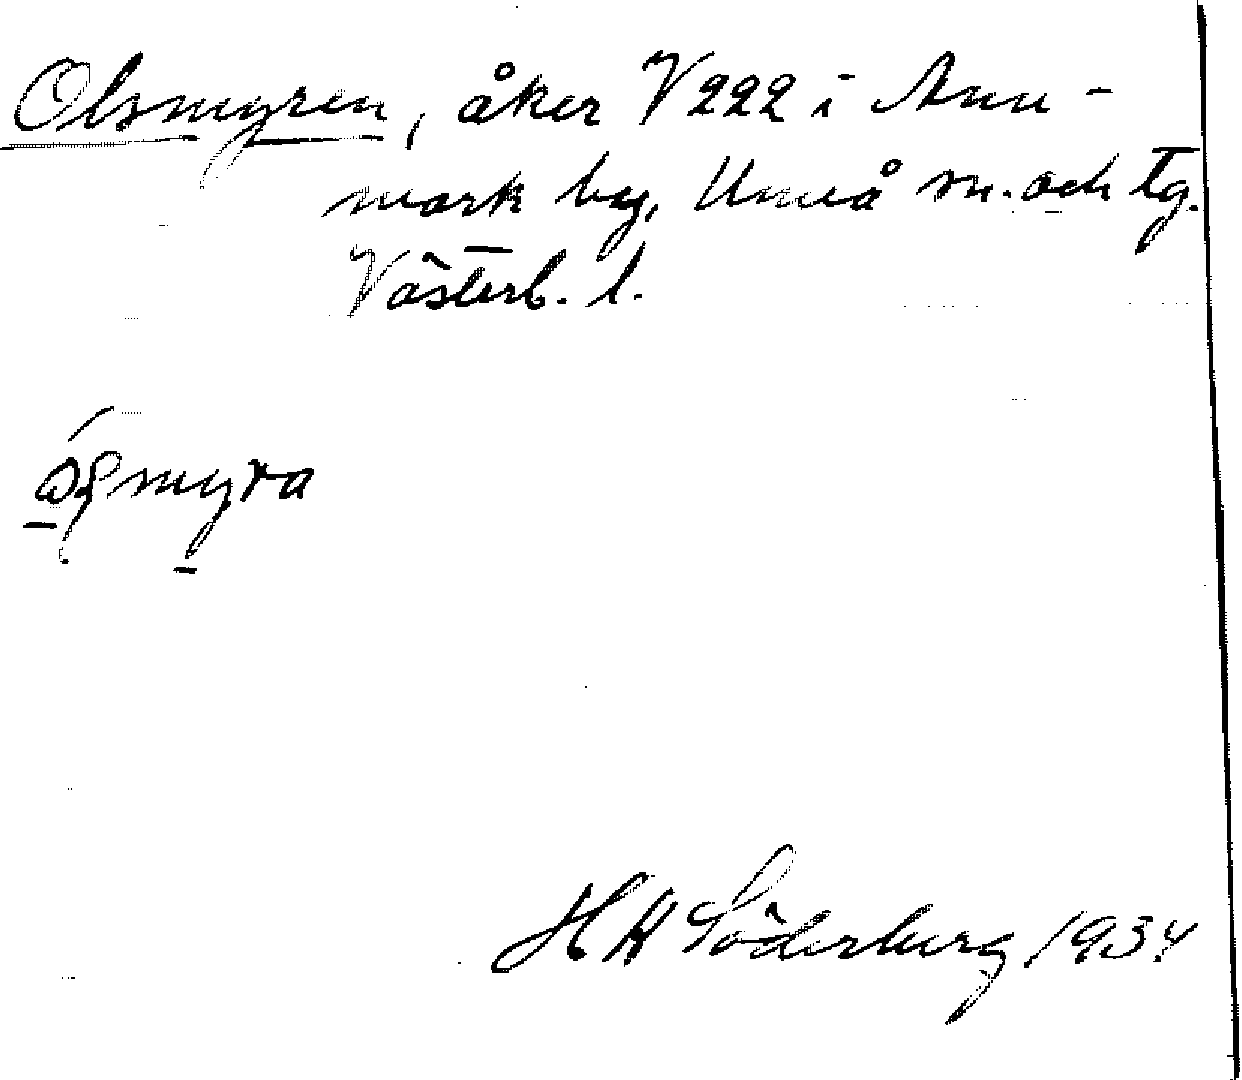 Olsmyren, åker V 222 i Anu-
mark by, Umeå sn. och tg.
Västerb. l.
H H Söderberg 1934